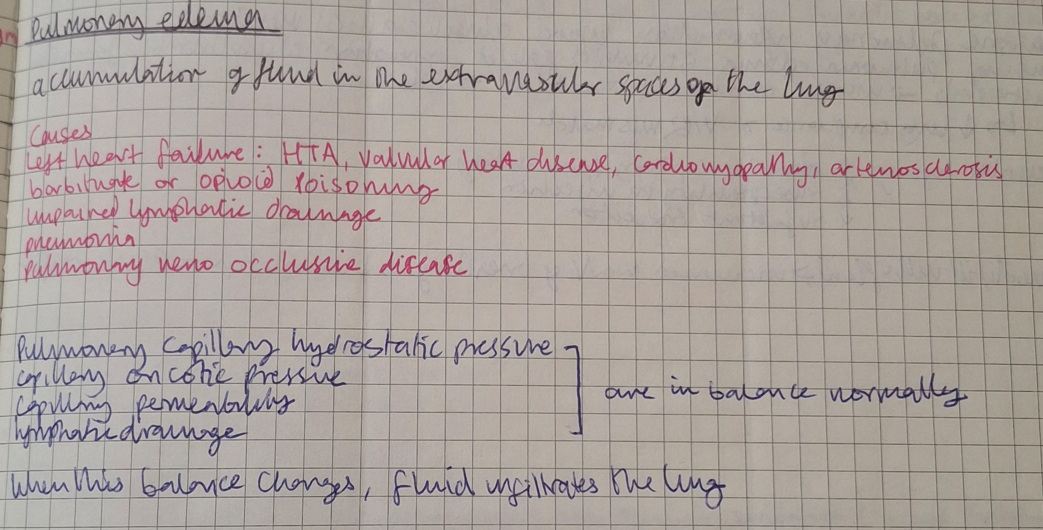 Pulmonary edema
accumulation of fluid in the extravascular spaces of the lung
Causes
Left heart failure: HTA, valvular heart disease, cardiomyopathy, arteriosclerosis
barbiturate or opioid poisoning
impaired lymphatic drainage
pneumonia
pulmonary veno occlusive disease
Pulmonary capillary hydrostatic pressure
capillary oncotic pressure
capillary permeability
lymphatic drainage
are in balance normally
When this balance changes, fluid infiltrates the lung